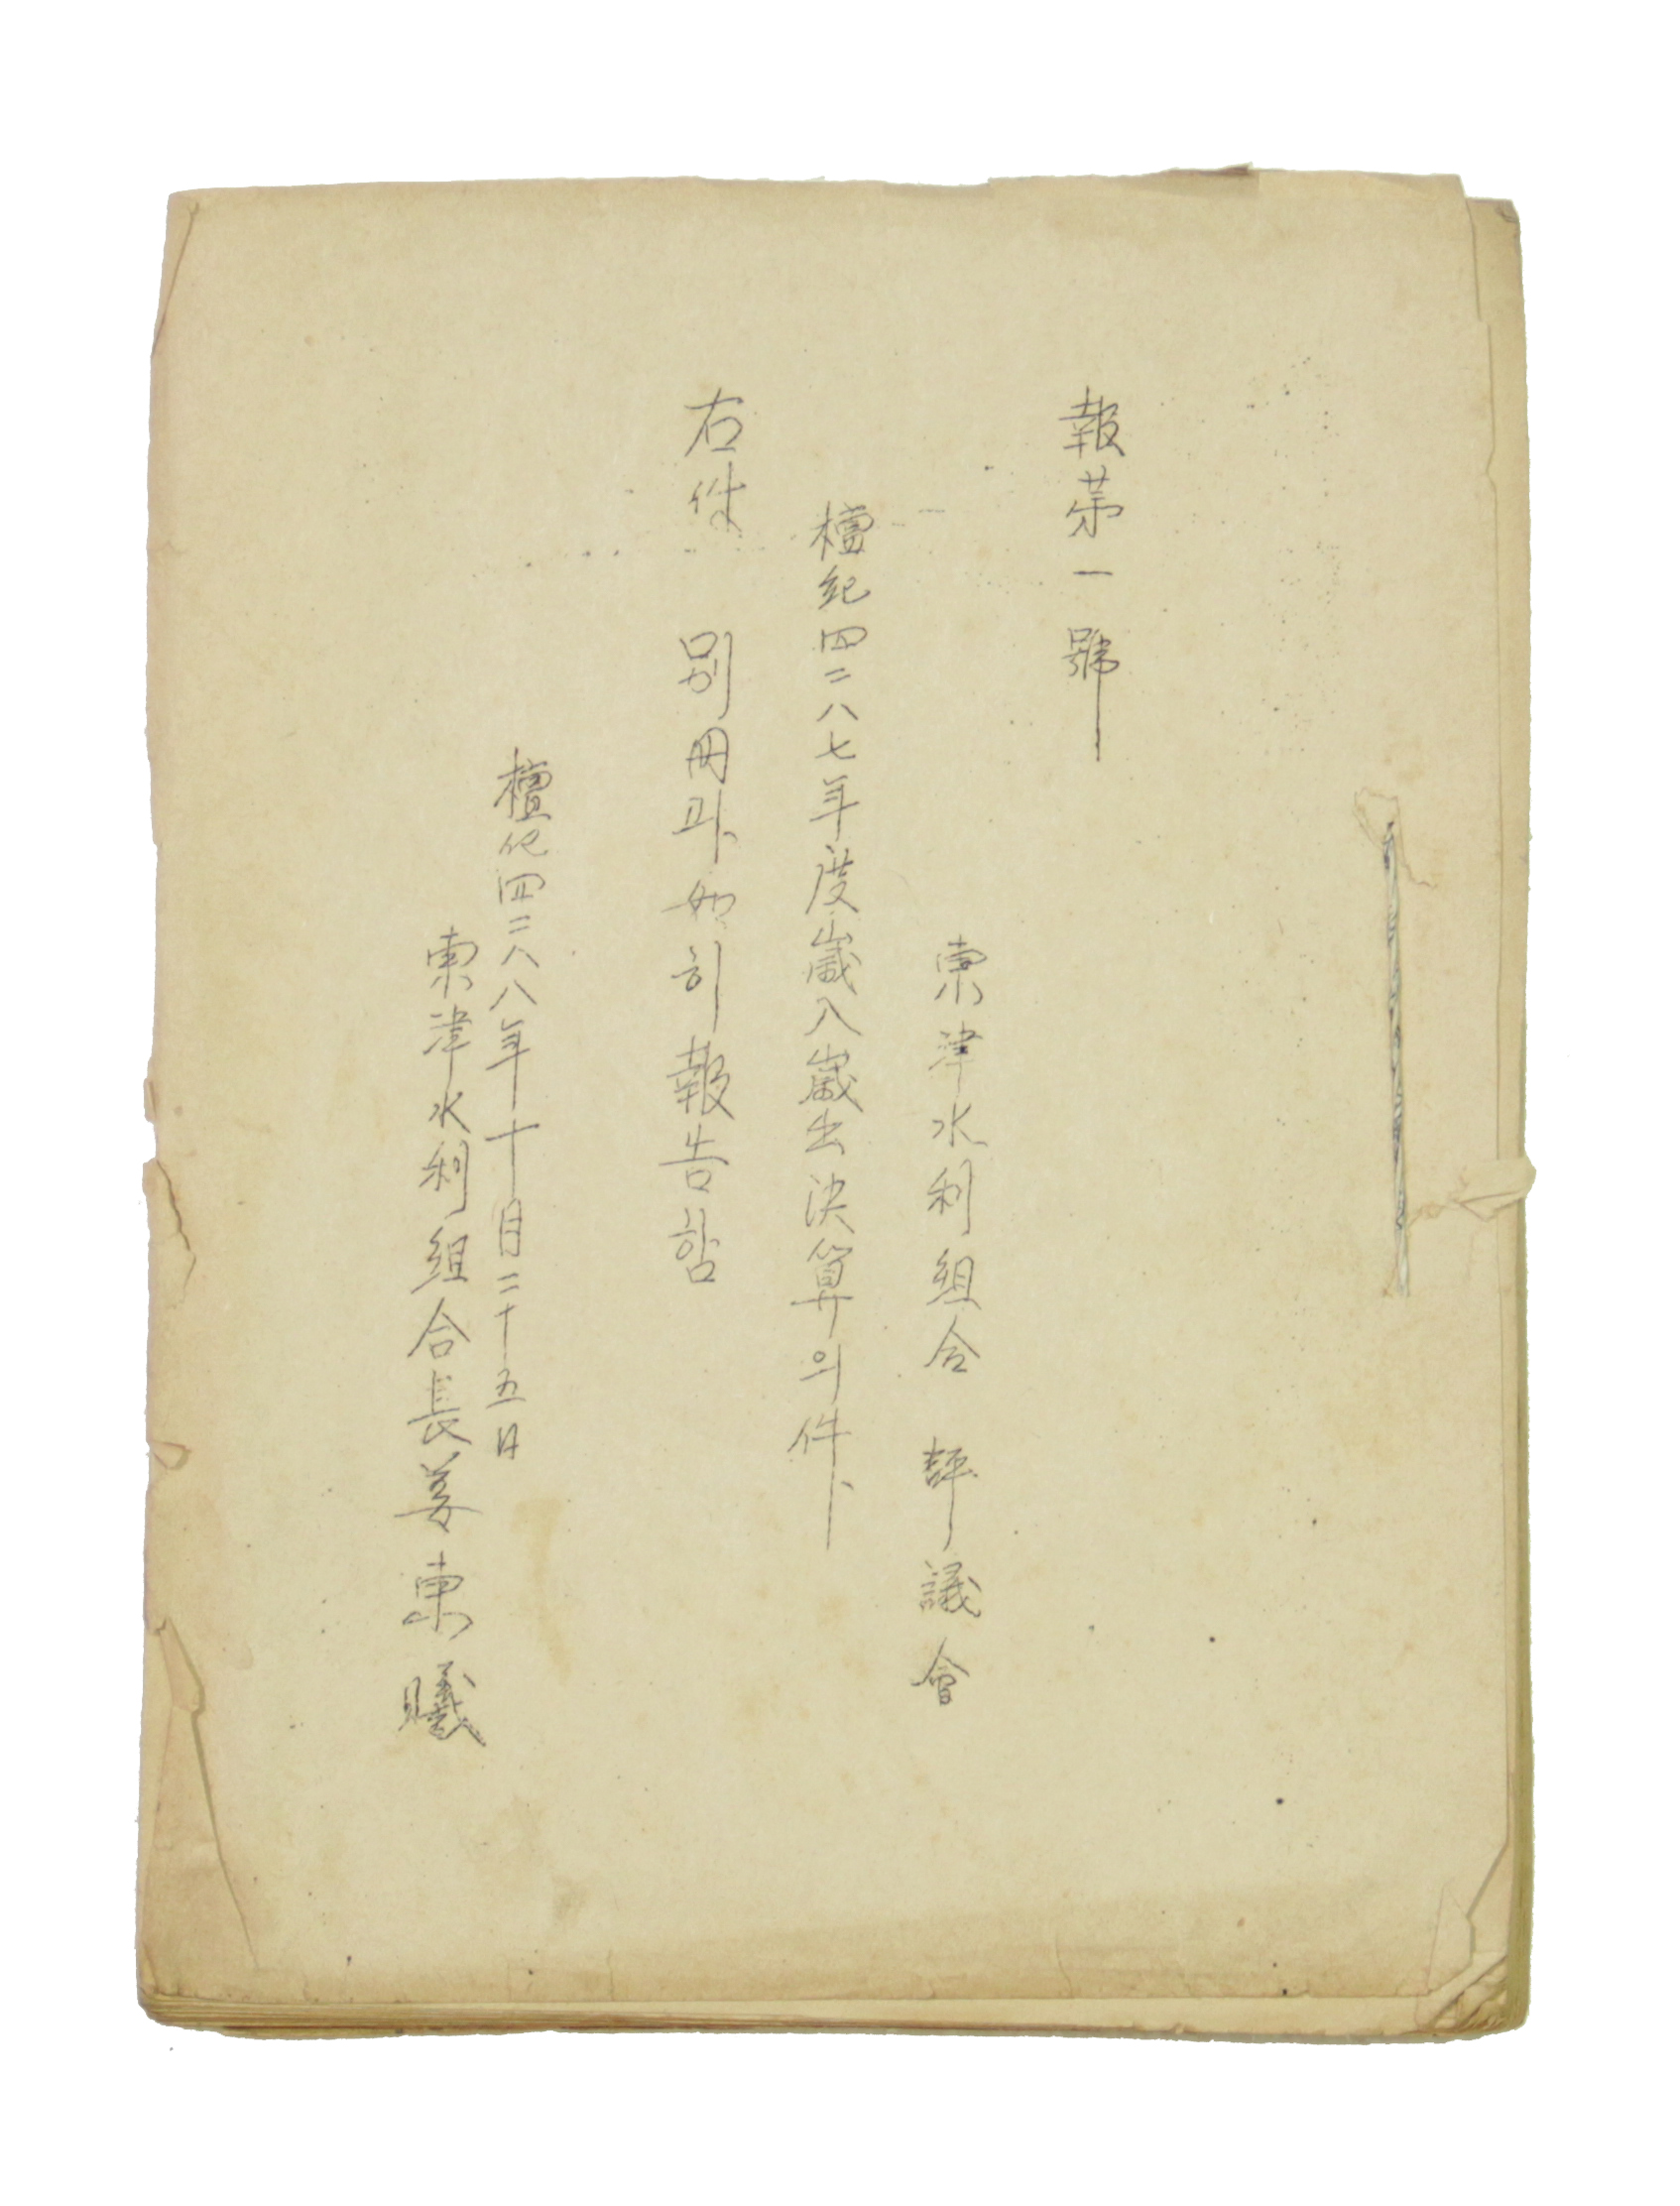 報第一號
東津水利組合 評議會
檀紀四二八七年度歲入歲出決算의件
右件 別冊과如히報告함
檀紀四二八八年十月二十五日
東津水利組合長姜東曦